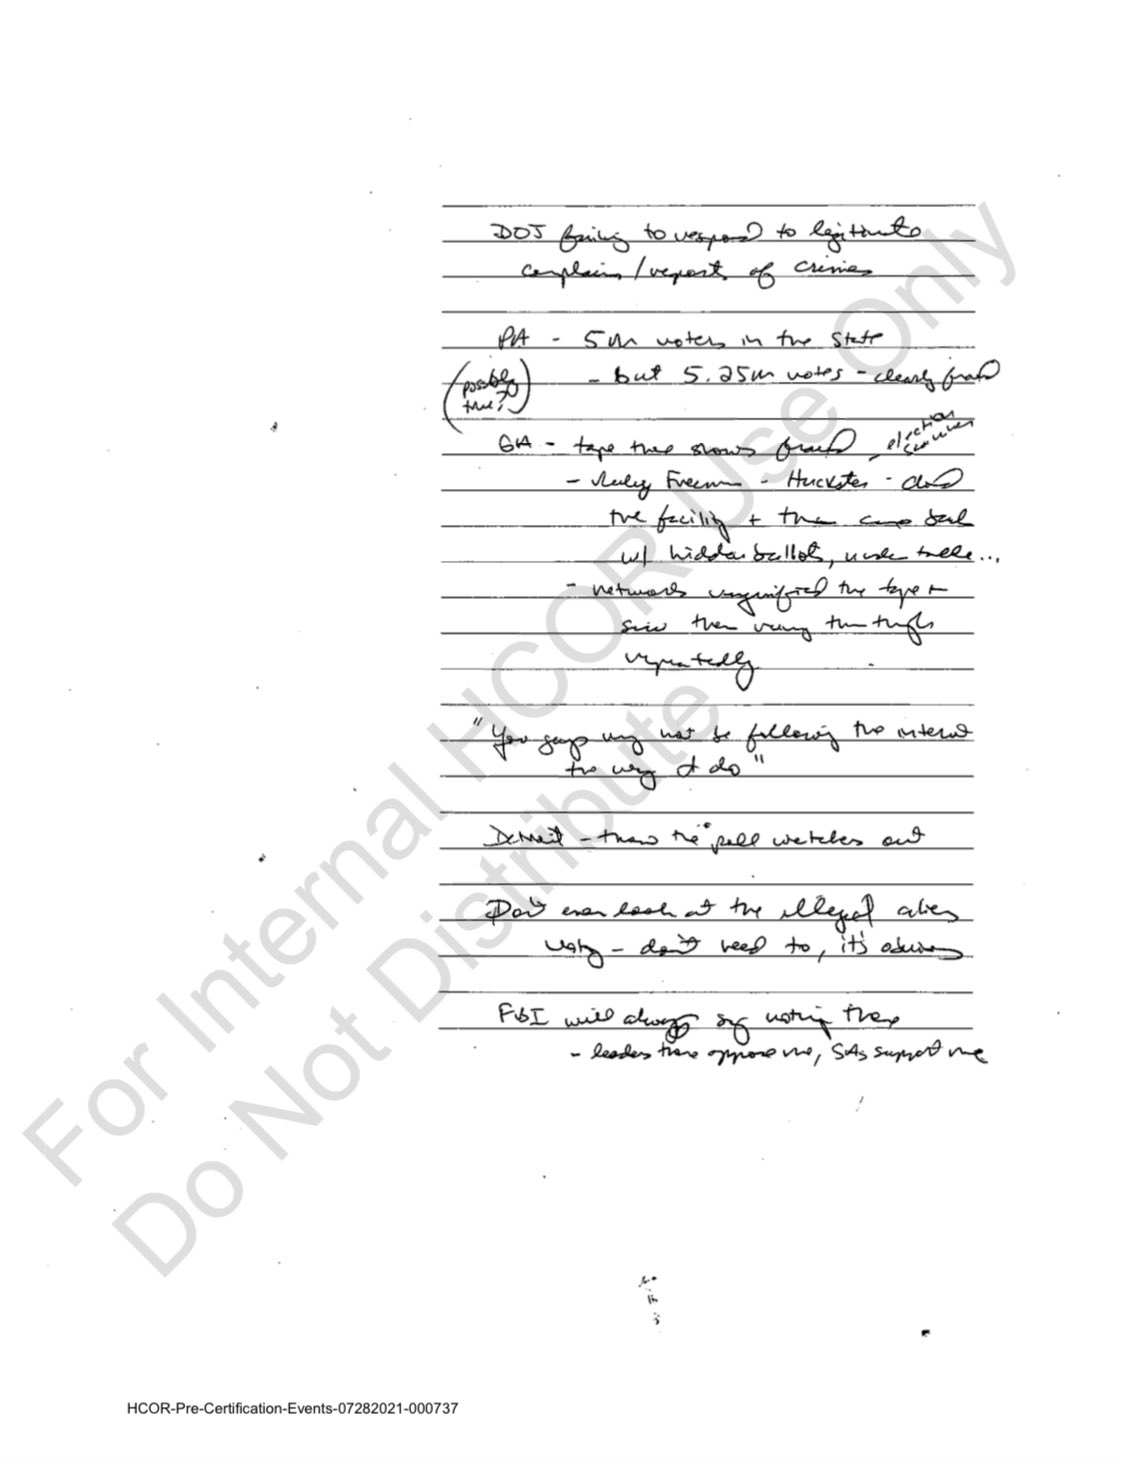 DOJ failing to respond to legitimate
complains/reports of crimes
PA - 5M voters in the state
(possibly true?)
- but 5.25M votes - clearly fraud
GA - tape that shows fraud - election
- Ruby Freeman - Huckster - closed
the facility + then came back
w/ hidden ballots, under table...
- networks magnified the tape +
saw them running them through
repeatedly
"You guys may not be following the internet
the way I do"
Detroit - threw the poll watchers out
Don't even look at the illegal aliens
voting - don't need to, it's obvious
FBI will always say nothing there
- leaders there oppose me, SAs support me
For Internal HCOR Use Only
Do Not Distribute
HCOR-Pre-Certification-Events-07282021-000737